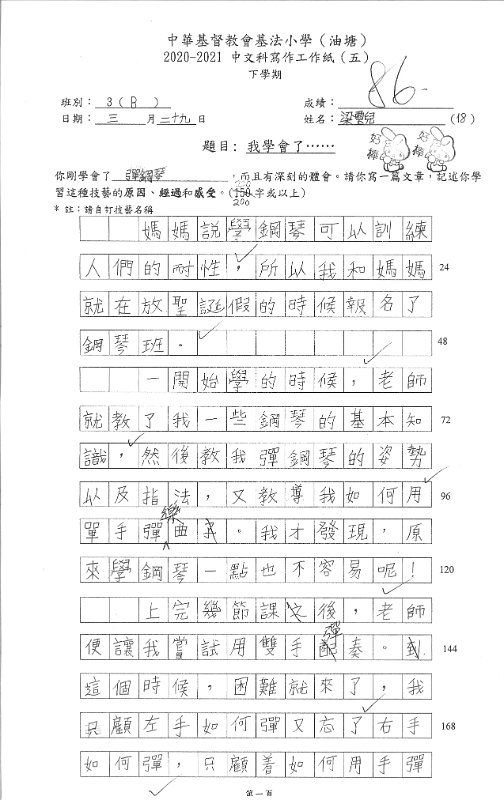 中華基督教會基法小學（油塘）
2020-2021 中文科寫作工作紙（五）
下學期
86-
班別： 3（R） 成績：
日期： 三 月 二十九 日 姓名： 梁雪兒 （18）
題目：我學會了⋯⋯
好棒 好棒
你剛學會了 彈鋼琴 ，而且有深刻的體會。請你寫一篇文章，記述你學
習這種技藝的原因、經過和感受。（150字或以上）
200
* 註：請自訂技藝名稱
媽媽說學鋼琴可以訓練
人們的耐性，所以我和媽媽 24
就在放聖誕假的時候報名了
鋼琴班。 48
一開始學的時候，老師
就教了我一些鋼琴的基本知 72
識，然後教我彈鋼琴的姿勢
以及指法，又教導我如何用 96
單手彈樂曲。我才發現，原
來學鋼琴一點也不容易呢！ 120
上完幾節課之後，老師
便讓我嘗試用雙手彈奏。 144
這個時候，困難就來了，我
只顧左手如何彈又忘了右手 168
如何彈，只顧着如何用手彈
第一頁